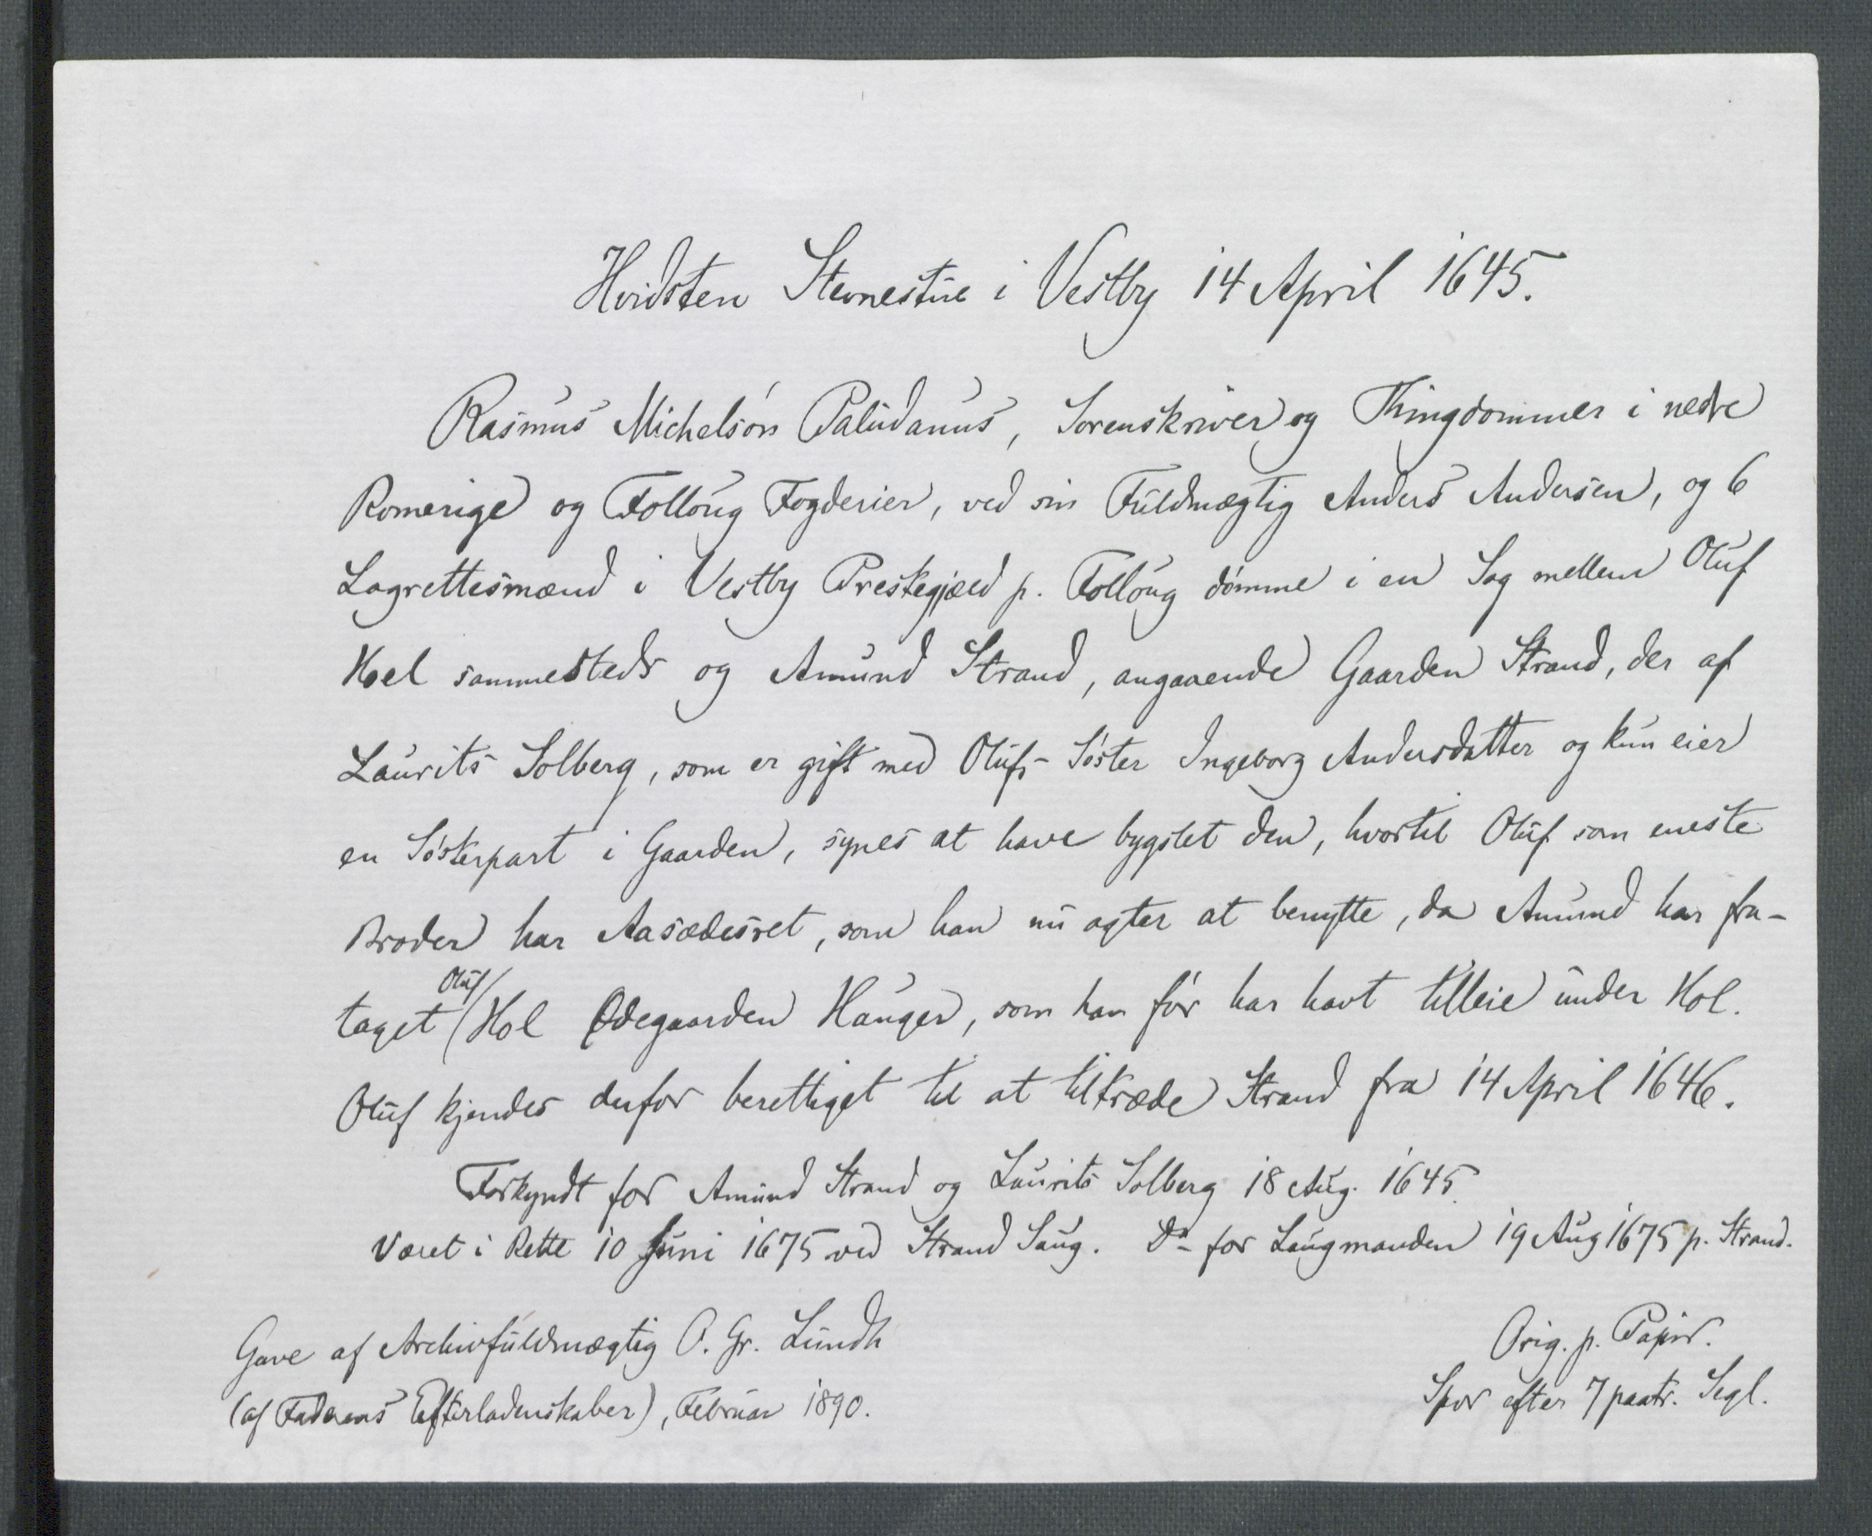 Hvidsten Stevnestue i Vestby 14 April 1645.
Rasmus Michelsøn Paludanus, Sorenskriver og Thingdommer i nedre
Romerige og Folloug Fogderier, ved sin Fuldmægtig Anders Andersen, og 6
Lagrettesmænd i Vestby Prestegjæld p. Folloug dømme i en Sag mellem Oluf
Hoel sammesteds og Amund Strand, angaaende Gaarden Strand, der af
Laurits Solberg, som er gift med Olufs Søster Ingeborg Andersdatter og kun eier
en Søsterpart i Gaarden, synes at have bygslet den, hvortil Oluf som eneste
Broder har Aasædesret, som han nu agter at benytte, da Amund har fra-
taget Oluf Hol Ødegaarden Hauger, som han før har havt tilleie under Hol.
Oluf kjendes derfor berettiget til at tiltræde Strand fra 14 April 1646.
Forkyndt for Amund Strand og Laurits Solberg 18 Aug. 1645.
Været i Rette 10 Juni 1675 ved Strand Saug. Do for Laugmanden 19 Aug 1675 p. Strand.
Gave af Archivfuldmægtig O. Gr. Lundh
(af Faderens Efterladenskaber), Februar 1890.
Orig. p. Papir.
Spor efter 7 paatr. Segl.